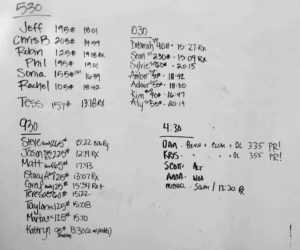 530
Jeff 195# 18:01
Chris B 205# 14:59
Robin 125# 19:18 RX
Phil 195# 19:01
Sonia 155# 16:39
Rachel 105# 18:42
Tess 157# 13:18 RX
1030
Deborah 90# 15:27 RX
Sean 230# 15:09 RX
Sylvie 50# 20:15
Amber 18:42
Adair 55# 18:30
Kim 90# 16:47
Aly 85# 20:19
930
Steve 265# 15:22
Jason 225# 12:19 RX
Matt 165# 17:43
Stacy A 125# 13:07 RX
Corey 125# 15:54 RX+
Teresa 60# 15:32
Taylor 125# 15:08
Marta 125# 15:10
Kathryn 65# 13:30
4:30
DAN - BENCH + CLEAN + DL 335 PR!
KRIS - " " + DL 355 PR!
SCOTT
ANDA - WOD
13:30 RX